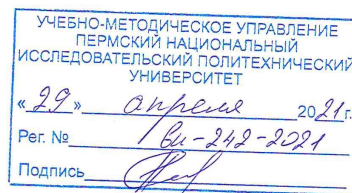 УЧЕБНО-МЕТОДИЧЕСКОЕ УПРАВЛЕНИЕ
ПЕРМСКИЙ НАЦИОНАЛЬНЫЙ
ИССЛЕДОВАТЕЛЬСКИЙ ПОЛИТЕХНИЧЕСКИЙ
УНИВЕРСИТЕТ
«29» апреля 2021г.
Рег. № ви-242-2021
Подпись